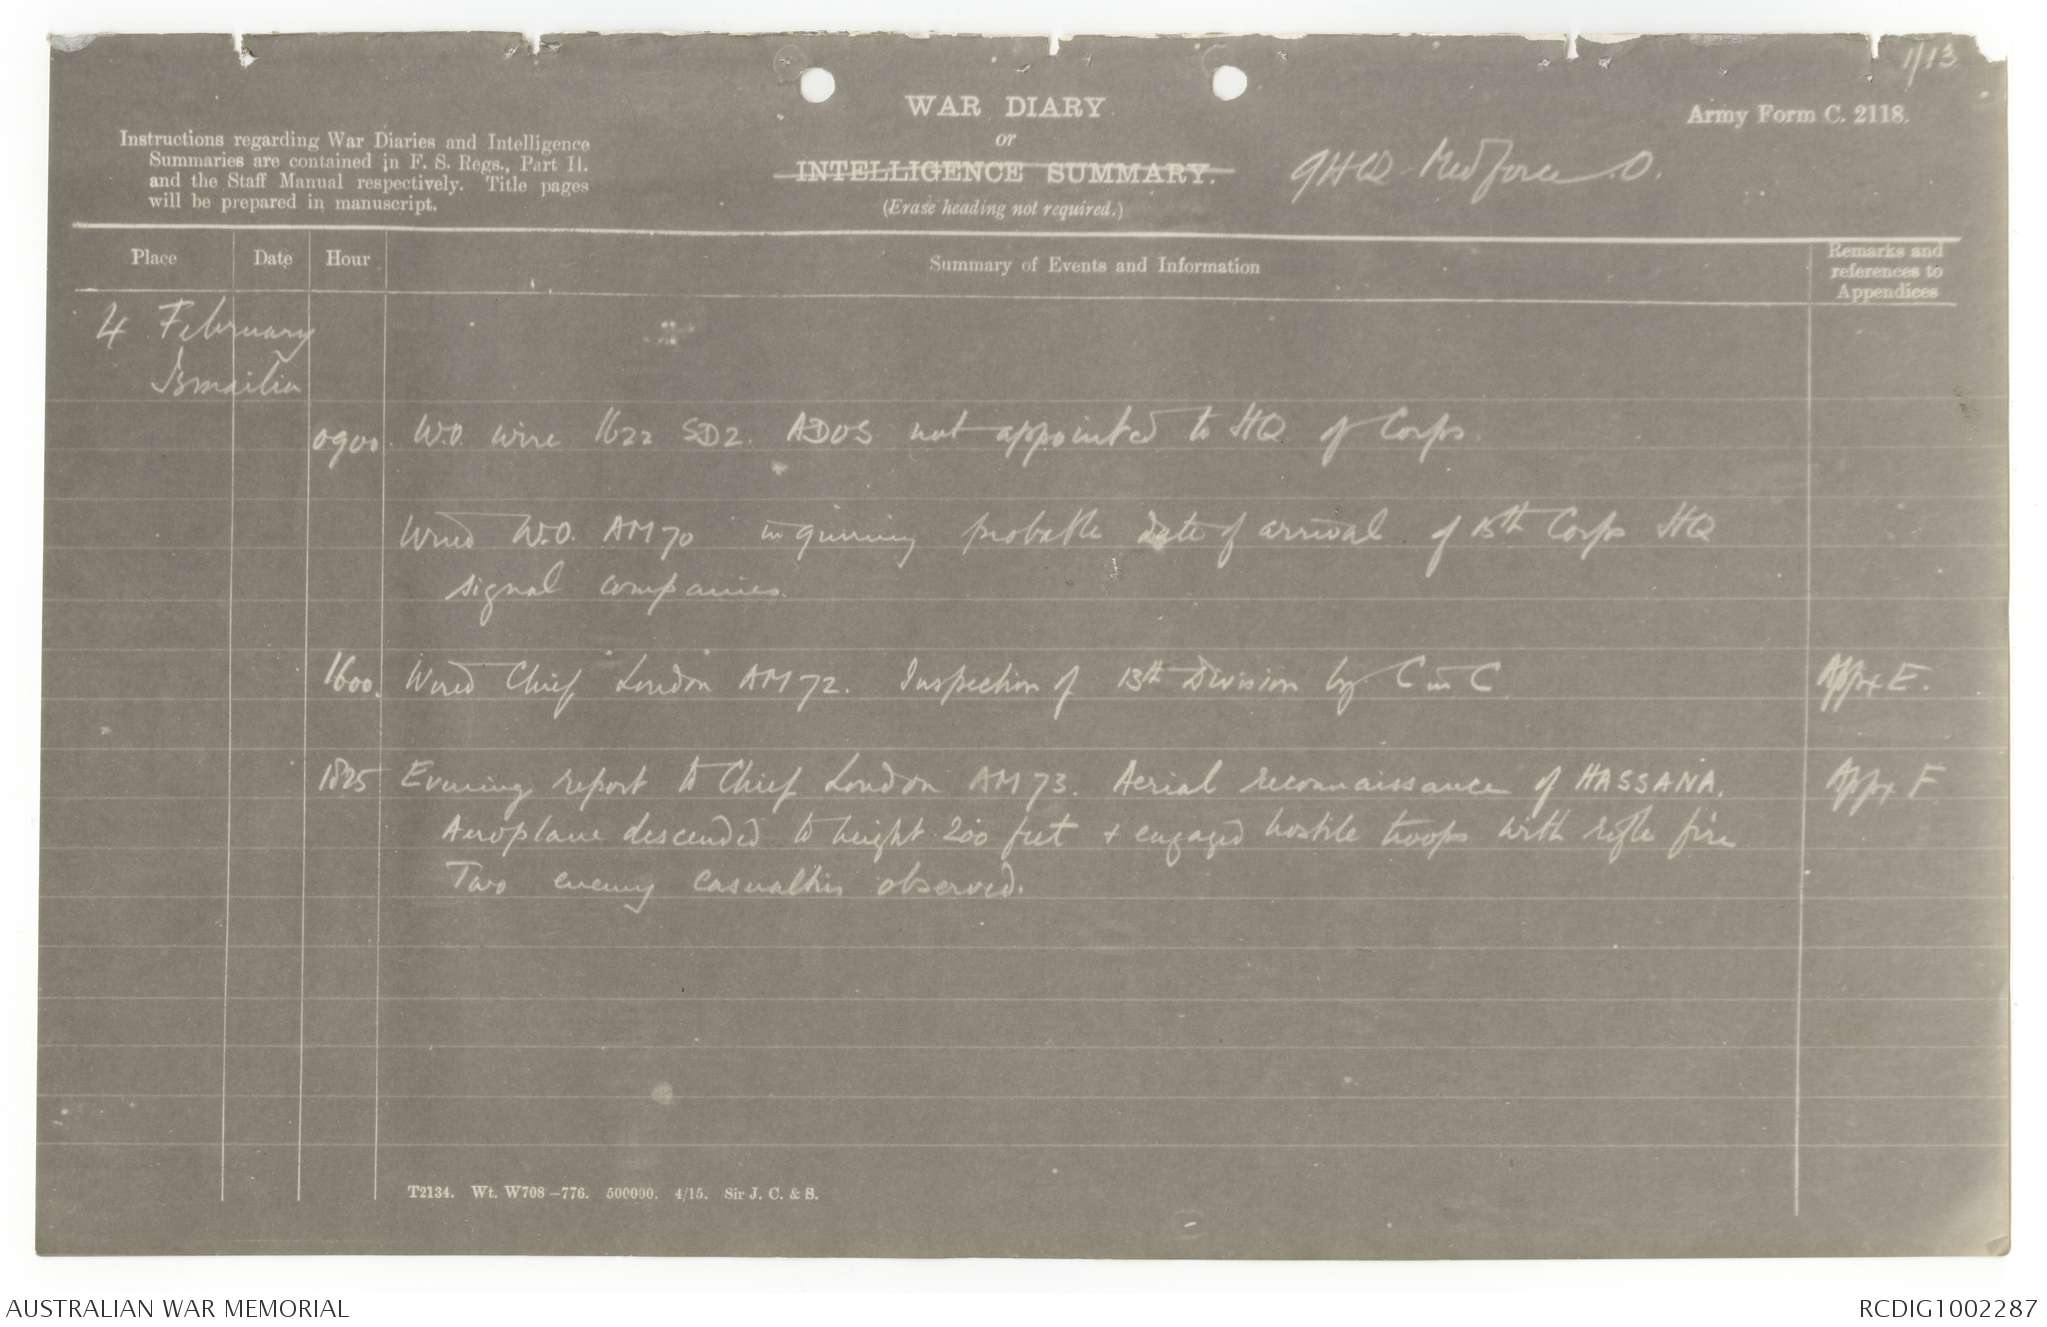 1/13
WAR DIARY
or
INTELLIGENCE SUMMARY.
(Erase heading not required.)
Army Form C. 2118.
Instructions regarding War Diaries and Intelligence
Summaries are contained in F. S. Regs., Part II.
and the Staff Manual respectively. Title pages
will be prepared in manuscript.
GHQ Medforce O.
Place Date Hour Summary of Events and Information Remarks and
references to
Appendices
4 February
Ismailia
0900. W.O. wire 1622 SD2. ADOS not appointed to HQ of Corps.
Wired W.O. AM70 inquiring probable date of arrival of 15th Corps HQ
signal companies.
1600. Wired Chief London AM72. Inspection of 13th Division by C in C Appx E.
1825 Evening report to Chief London AM73. Aerial reconnaissance of HASSANA. Appx F
Aeroplane descended to height 200 feet + engaged hostile troops with rifle fire
Two enemy casualties observed.
T2134. Wt. W708—776. 500000. 4/15. Sir J. C. & S.
AUSTRALIAN WAR MEMORIAL
RCDIG1002287